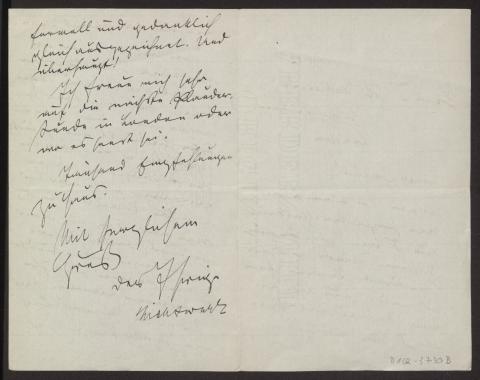 formell und gedanklich
gleich ausgezeichnet. Und
überhaupt!
Ich freue mich sehr
auf die nächste Plauder-
stunde in London oder
wo es sonst sei.
Tausend Empfehlungen
zu Haus.
Mit herzlichem
Gruß
der Ihrige
Lichtwark